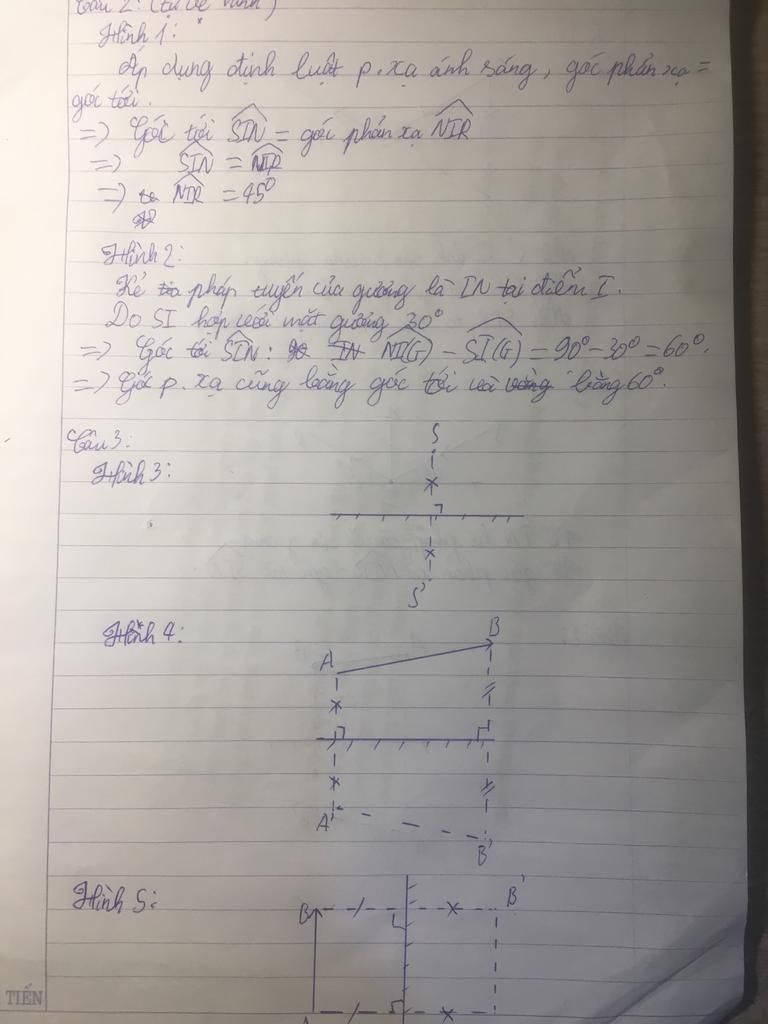 Câu 2: (tự vẽ hình)
Hình 1:
Áp dụng định luật p.xạ ánh sáng, góc phản xạ =
góc tới.
=> Góc tới SIN = góc phản xạ NIR
=> SIN = NIR
=> NIR = 45°
Hình 2:
Kẻ pháp tuyến của gương là IN tại điểm I.
Do SI hợp với mặt gương 30°
=> Góc tới SIN: NI(G) - SI(G) = 90° - 30° = 60°.
=> Góc p.xạ cũng bằng góc tới và bằng 60°.
Câu 3:
S
Hình 3:
S'
Hình 4:
B
A
A'
B'
Hình 5:
B
B'
A
TIẾN